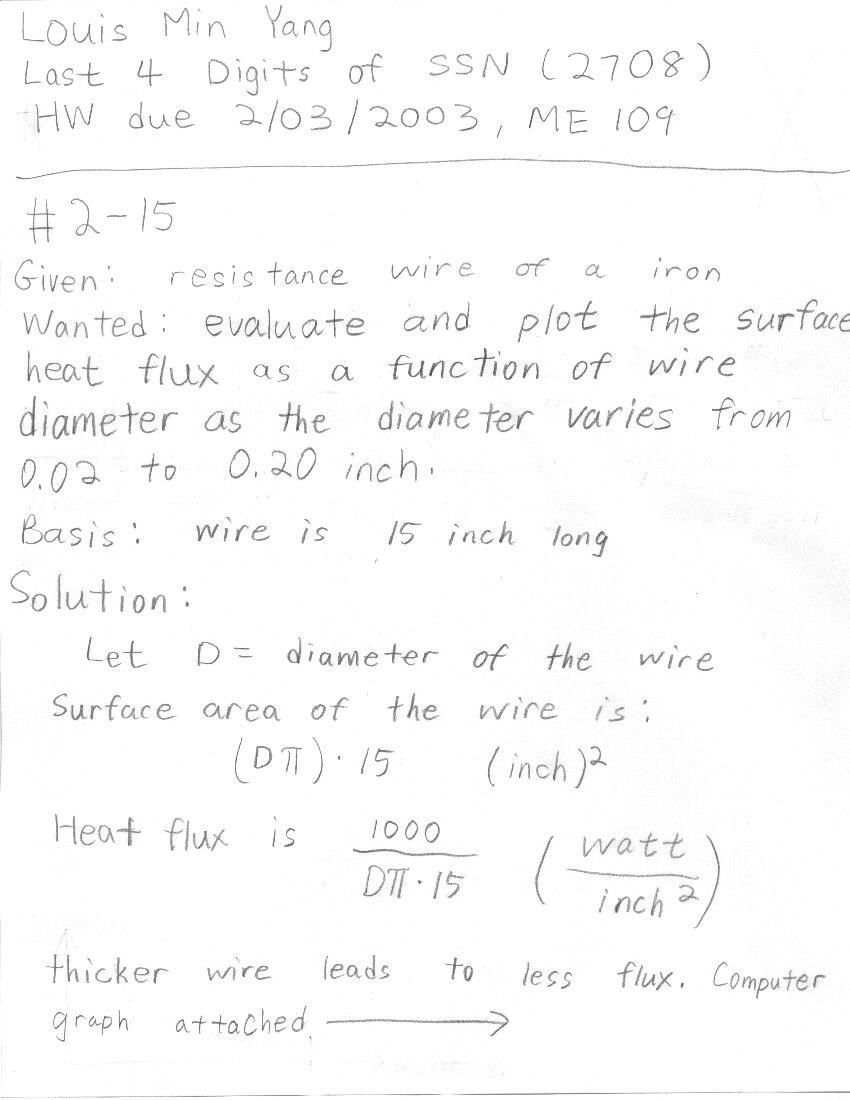 Louis Min Yang
Last 4 Digits of SSN (2708)
HW due 2/03/2003, ME 109
#2-15
Given: resistance wire of a iron
Wanted: evaluate and plot the surface
heat flux as a function of wire
diameter as the diameter varies from
0.02 to 0.20 inch.
Basis: wire is 15 inch long
Solution:
Let D = diameter of the wire
Surface area of the wire is:
(Dπ)·15 (inch)²
Heat flux is 1000 / Dπ·15 (watt / inch²)
thicker wire leads to less flux. Computer
graph attached. →